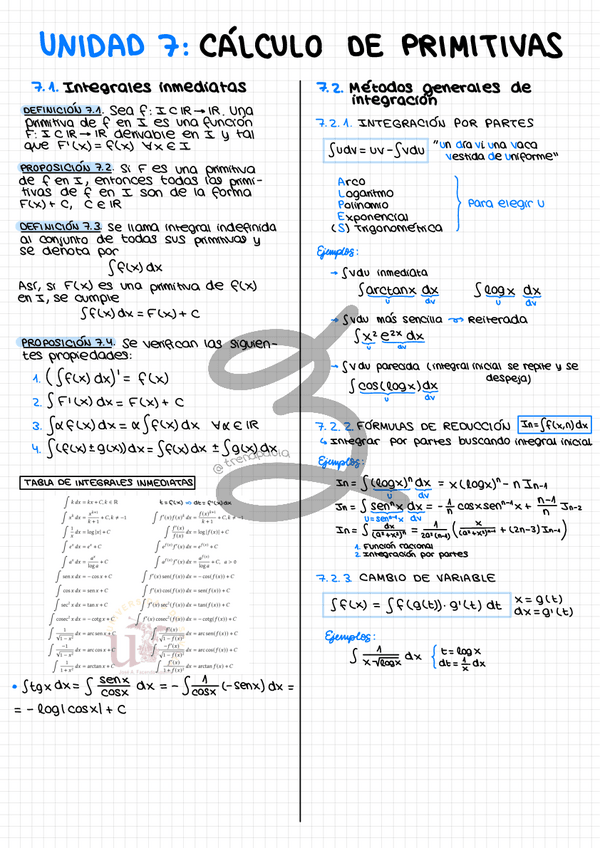 UNIDAD 7: CÁLCULO DE PRIMITIVAS
7.1. Integrales inmediatas
DEFINICIÓN 7.1. Sea f: I ⊂ IR → IR. Una
primitiva de f en I es una función
F: I ⊂ IR → IR derivable en I y tal
que F'(x) = f(x) ∀x ∈ I
PROPOSICIÓN 7.2. Si F es una primitiva
de f en I, entonces todas las primi-
tivas de f en I son de la forma
F(x) + C, C ∈ IR
DEFINICIÓN 7.3. Se llama integral indefinida
al conjunto de todas sus primitivas y
se denota por
∫f(x) dx
Así, si F(x) es una primitiva de f(x)
en I, se cumple
∫f(x) dx = F(x) + C
PROPOSICIÓN 7.4. Se verifican las siguien-
tes propiedades:
1. (∫f(x) dx)' = f(x)
2. ∫F'(x) dx = F(x) + C
3. ∫α f(x) dx = α∫f(x) dx ∀α ∈ IR
4. ∫(f(x) ± g(x)) dx = ∫f(x) dx ± ∫g(x) dx
@trenapaula
TABLA DE INTEGRALES INMEDIATAS
∫ k dx = kx + C, k ∈ ℝ t = f(x) ⇒ dt = f'(x) dx
∫ x^k dx = x^(k+1)/(k+1) + C, k ≠ −1 ∫ f'(x) f(x)^k dx = f(x)^(k+1)/(k+1) + C, k ≠ −1
∫ 1/x dx = log|x| + C ∫ f'(x)/f(x) dx = log|f(x)| + C
∫ e^x dx = e^x + C ∫ e^f(x) f'(x) dx = e^f(x) + C
∫ a^x dx = a^x/log a + C ∫ a^f(x) f'(x) dx = a^f(x)/log a + C, a > 0
∫ sen x dx = − cos x + C ∫ f'(x) sen f(x) dx = − cos f(x) + C
∫ cos x dx = sen x + C ∫ f'(x) cos f(x) dx = sen f(x) + C
∫ sec² x dx = tan x + C ∫ f'(x) sec² f(x) dx = tan f(x) + C
∫ cosec² x dx = − cotg x + C ∫ f'(x) cosec² f(x) dx = − cotg f(x) + C
∫ 1/√(1 − x²) dx = arc sen x + C ∫ f'(x)/√(1 − f(x)²) dx = arc sen f(x) + C
∫ −1/√(1 − x²) dx = arc cos x + C ∫ −f'(x)/√(1 − f(x)²) dx = arc cos f(x) + C
∫ 1/(1 + x²) dx = arctan x + C ∫ f'(x)/(1 + f(x)²) dx = arctan f(x) + C
• ∫tgx dx = ∫ senx/cosx dx = − ∫ 1/cosx (−senx) dx =
= − log|cosx| + C
7.2. Métodos generales de
integración
7.2.1. INTEGRACIÓN POR PARTES
∫udv = uv − ∫vdu "un día vi una vaca
vestida de uniforme"
Arco
Logaritmo
Polinomio
Exponencial
(S) Trigonométrica
Para elegir u
Ejemplos:
→ ∫vdu inmediata
∫arctanx dx ∫logx dx
u dv u dv
→ ∫vdu más sencilla ⇝ Reiterada
∫x² e^2x dx
u dv
→ ∫vdu parecida (integral inicial se repite y se
despeja)
∫cos(logx)dx
u dv
7.2.2. FÓRMULAS DE REDUCCIÓN In = ∫f(x,n)dx
↳ Integrar por partes buscando integral inicial
Ejemplos:
In = ∫(logx)^n dx = x(logx)^n − n In-1
u dv
In = ∫sen^n x dx = − 1/n cosx sen^(n-1) x + (n-1)/n In-2
u = sen^(n-1) x dv
In = ∫ dx/(a²+x²)^n = 1/(2a²(n-1)) (x/(a²+x²)^(n-1) + (2n-3) In-1)
1. Función racional
2. Integración por partes
7.2.3. CAMBIO DE VARIABLE
∫f(x) = ∫f(g(t))·g'(t) dt x = g(t)
dx = g'(t)
Ejemplos:
∫ 1/(x√logx) dx { t = logx
dt = 1/x dx